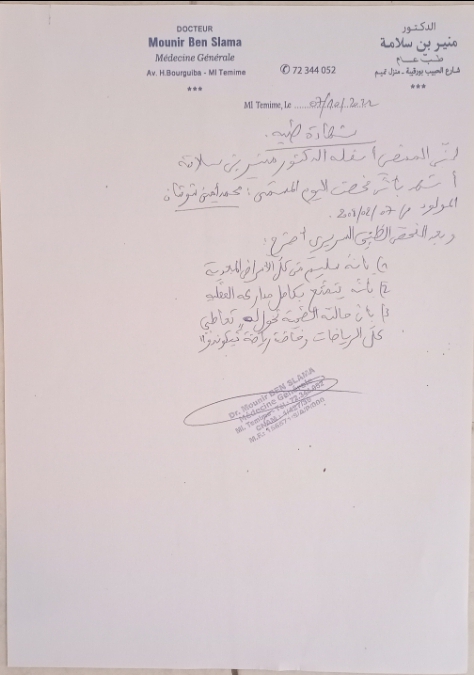 DOCTEUR
Mounir Ben Slama
Médecine Générale
Av. H.Bourguiba - Ml Temime
***
✆ 72 344 052
الدكتور
منير بن سلامة
طب عام
شارع الحبيب بورقيبة - منزل تميم
***
Ml Temime, Le ......07/10/2022
شهادة طبية.
إنّي الممضي أسفله الدكتور منير بن سلامة
أشهد بأنّي فحصت اليوم المسمّى: محمد أمين
المولود في
و بعد الفحص الطبي السريري أصرح:
1) بأنه سليم من كل الأمراض المعدية
2) بأنّه يتمتّع بكامل مداركه العقلية
3) بأن حالته الصحية تخول له تعاطي
كلّ الرياضات و خاصة رياضة تيكوندو"
Dr. Mounir BEN SLAMA
Médecine Générale
Ml. Temime - Tél.: